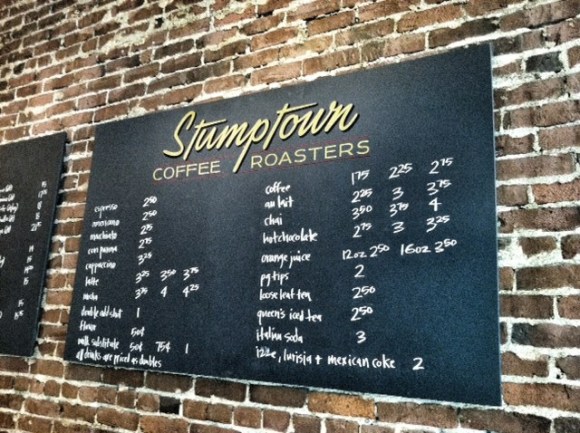 Stumptown
COFFEE ROASTERS
espresso 2⁵⁰
americano 2⁵⁰
machiato 2⁷⁵
con panna 2⁷⁵
cappuccino 3²⁵
latte 3²⁵ 3⁵⁰ 3⁷⁵
mocha 3⁷⁵ 4 4²⁵
double add shot 1
flavor 50¢
milk substitute 50¢ 75¢ 1
all drinks are priced as doubles
coffee 1⁷⁵ 2²⁵ 2⁷⁵
au lait 2²⁵ 3 3⁷⁵
chai 3⁵⁰ 3⁷⁵ 4
hot chocolate 2⁷⁵ 3 3²⁵
orange juice 12oz 2⁵⁰ 16oz 3⁵⁰
pg tips 2
loose leaf tea 2⁵⁰
queen's iced tea 2⁵⁰
italian soda 3
izze, lurisia + mexican coke 2